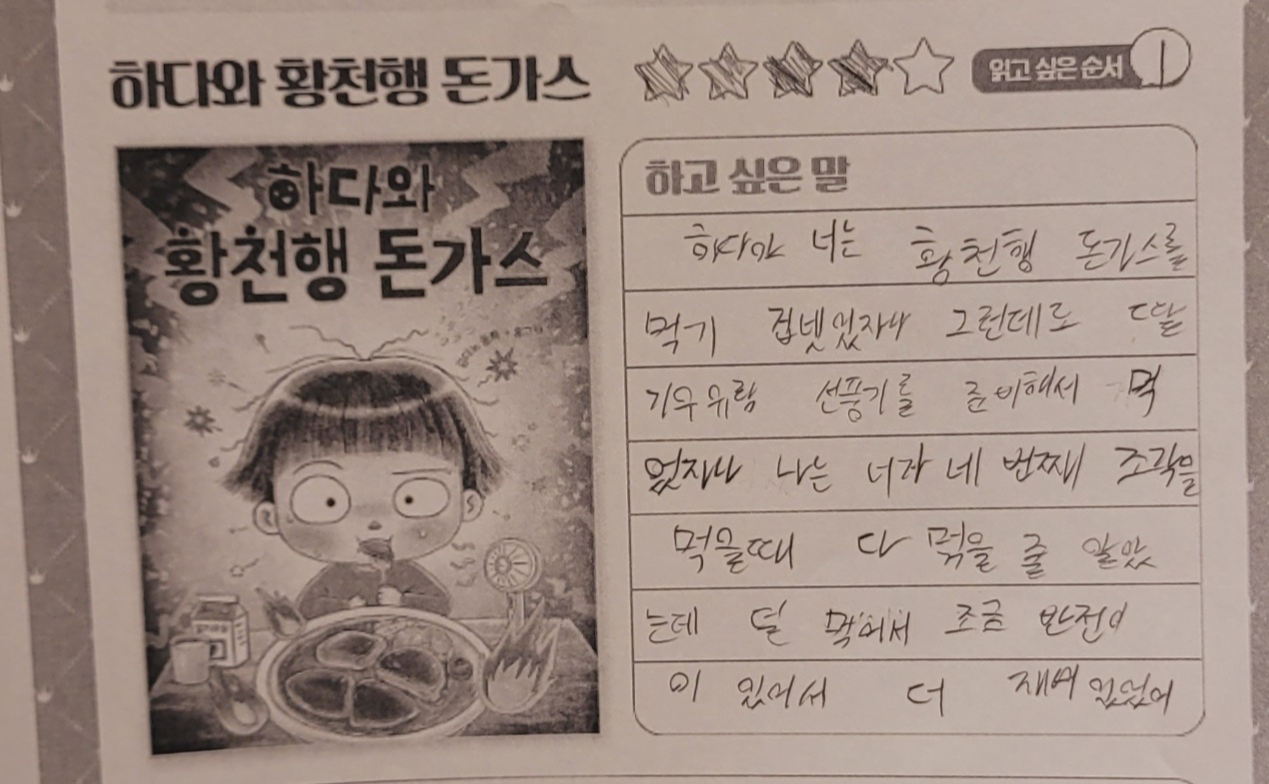 하다와 황천행 돈가스
읽고 싶은 순서 1
하다와
황천행 돈가스
하고 싶은 말
하다야 너는 황천행 돈가스를
먹기 겁냇었자나 그런데도 딸
기우유랑 선풍기를 준비해서 먹
었자나 나는 너가 네 번째 조각을
먹을때 다 먹을 줄 알았
는데 덜 먹어서 조금 반전이
이 있어서 더 재버있었어